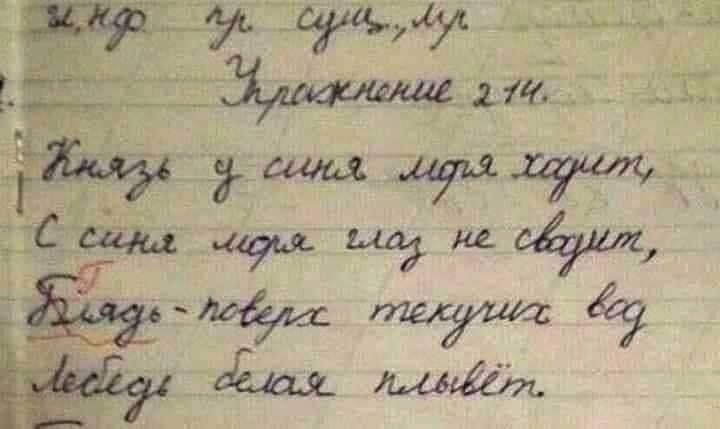 гл, нф пр. сущ., мр
Упражнение 214.
Князь у синя моря ходит,
С синя моря глаз не сводит,
Г
Блядь - поверх текучих вод
Лебедь белая плывёт.